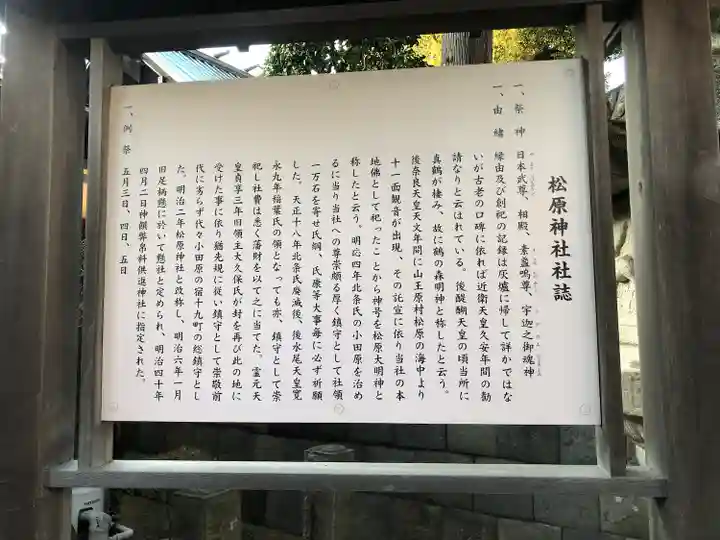 松原神社社誌
一、祭神 日本武尊、相殿、素盞嗚尊、宇迦之御魂神
一、由緒 縁由及び創祀の記録は灰燼に帰して詳かではな
いが古老の口碑に依れば近衛天皇久安年間の勧
請なりと云はれている。後醍醐天皇の頃当所に
真鶴が棲み、故に鶴の森明神と称したと云う。
後奈良天皇天文年間に山王原村松原の海中より
十一面観音が出現、その託宣に依り当社の本
地佛として祀ったことから神号を松原大明神と
称したと云う。明応四年北条氏の小田原を治め
るに当り当社への尊崇頗る厚く鎮守として社領
一万石を寄せ氏綱、氏康等大事毎に必ず祈願
した。天正十八年北条氏廃滅後、後水尾天皇寛
永九年稲葉氏の領となっても亦、鎮守として崇
祀し社費は悉く藩財を以て之に当てた。霊元天
皇貞享三年旧領主大久保氏が封を再び此の地に
受けた事に依り猶先規に従い鎮守として崇敬前
代に劣らず代々小田原の宿十九町の総鎮守とし
た。明治二年松原神社と改称し、明治六年一月
旧足柄懸に於いて懸社と定められ、明治四十年
四月二日神饌弊帛料供進神社に指定された。
一、例祭 五月三日、四日、五日